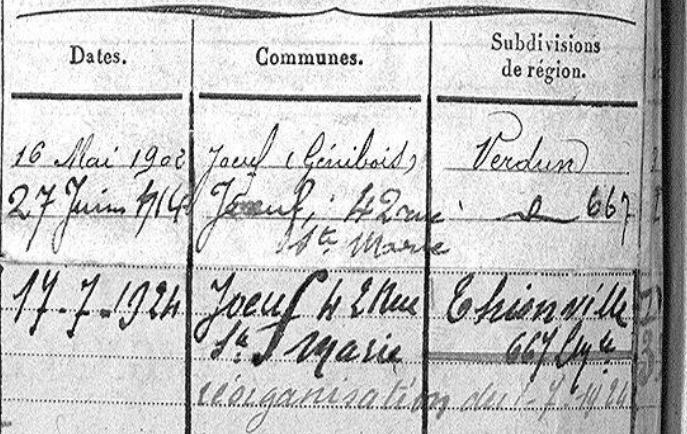 Dates. Communes. Subdivisions
de région.
16 Mai 1902 Joeuf (Génibois) Verdun
27 Juin 1914 Joeuf, 42 rue 667
Ste Marie
17-7-1924 Joeuf 42 Rue Thionville
Ste Marie 667
réorganisation du 1-7-1924